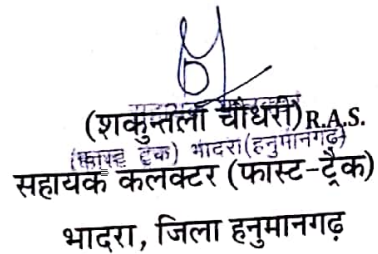 (शकुन्तला चौधरी) R.A.S.
(फास्ट ट्रैक) भादरा (हनुमानगढ़)
सहायक कलक्टर (फास्ट-ट्रैक)
भादरा, जिला हनुमानगढ़